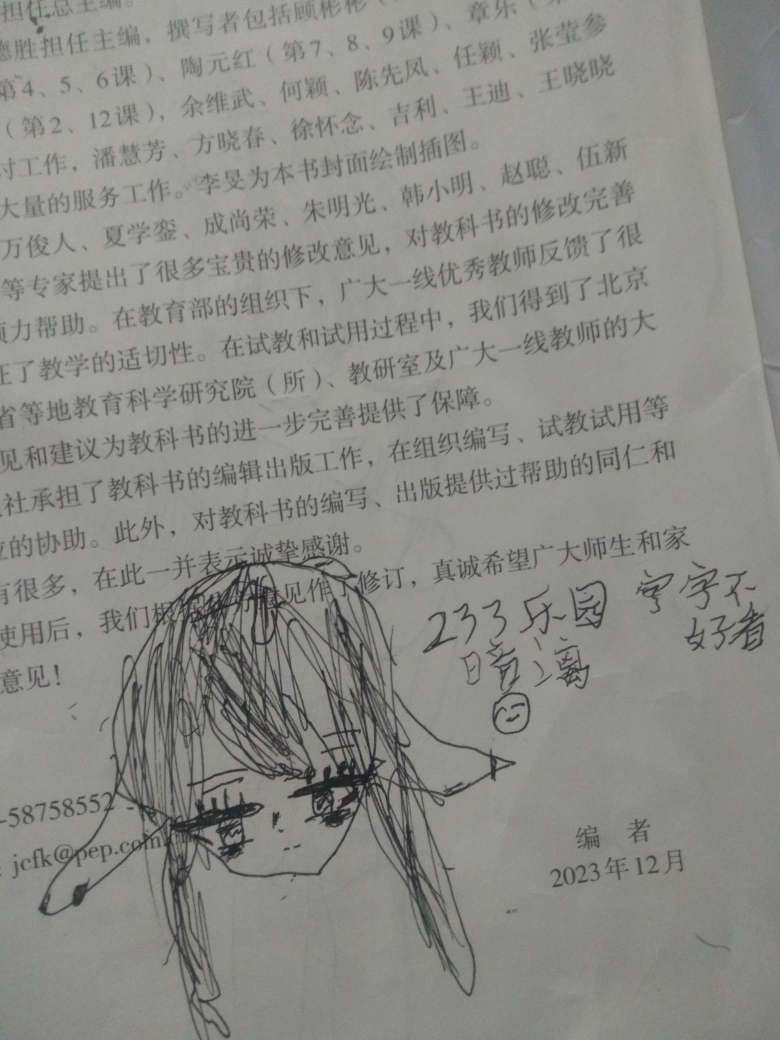 担任总主编。
德胜担任主编，撰写者包括顾彬彬
第4、5、6课）、陶元红（第7、8、9课）、章乐（第
（第2、12课），余维武、何颖、陈先凤、任颖、张莹参
讨工作，潘慧芳、方晓春、徐怀念、吉利、王迪、王晓晓
大量的服务工作。李旻为本书封面绘制插图。
万俊人、夏学銮、成尚荣、朱明光、韩小明、赵聪、伍新
等专家提出了很多宝贵的修改意见，对教科书的修改完善
倾力帮助。在教育部的组织下，广大一线优秀教师反馈了很
证了教学的适切性。在试教和试用过程中，我们得到了北京
省等地教育科学研究院（所）、教研室及广大一线教师的大
见和建议为教科书的进一步完善提供了保障。
社承担了教科书的编辑出版工作，在组织编写、试教试用等
位的协助。此外，对教科书的编写、出版提供过帮助的同仁和
有很多，在此一并表示诚挚感谢。
使用后，我们根 见作了修订，真诚希望广大师生和家
意见！
233乐园 字不
好看
暗漓
-58758552
jcfk@pep.com
编 者
2023年12月